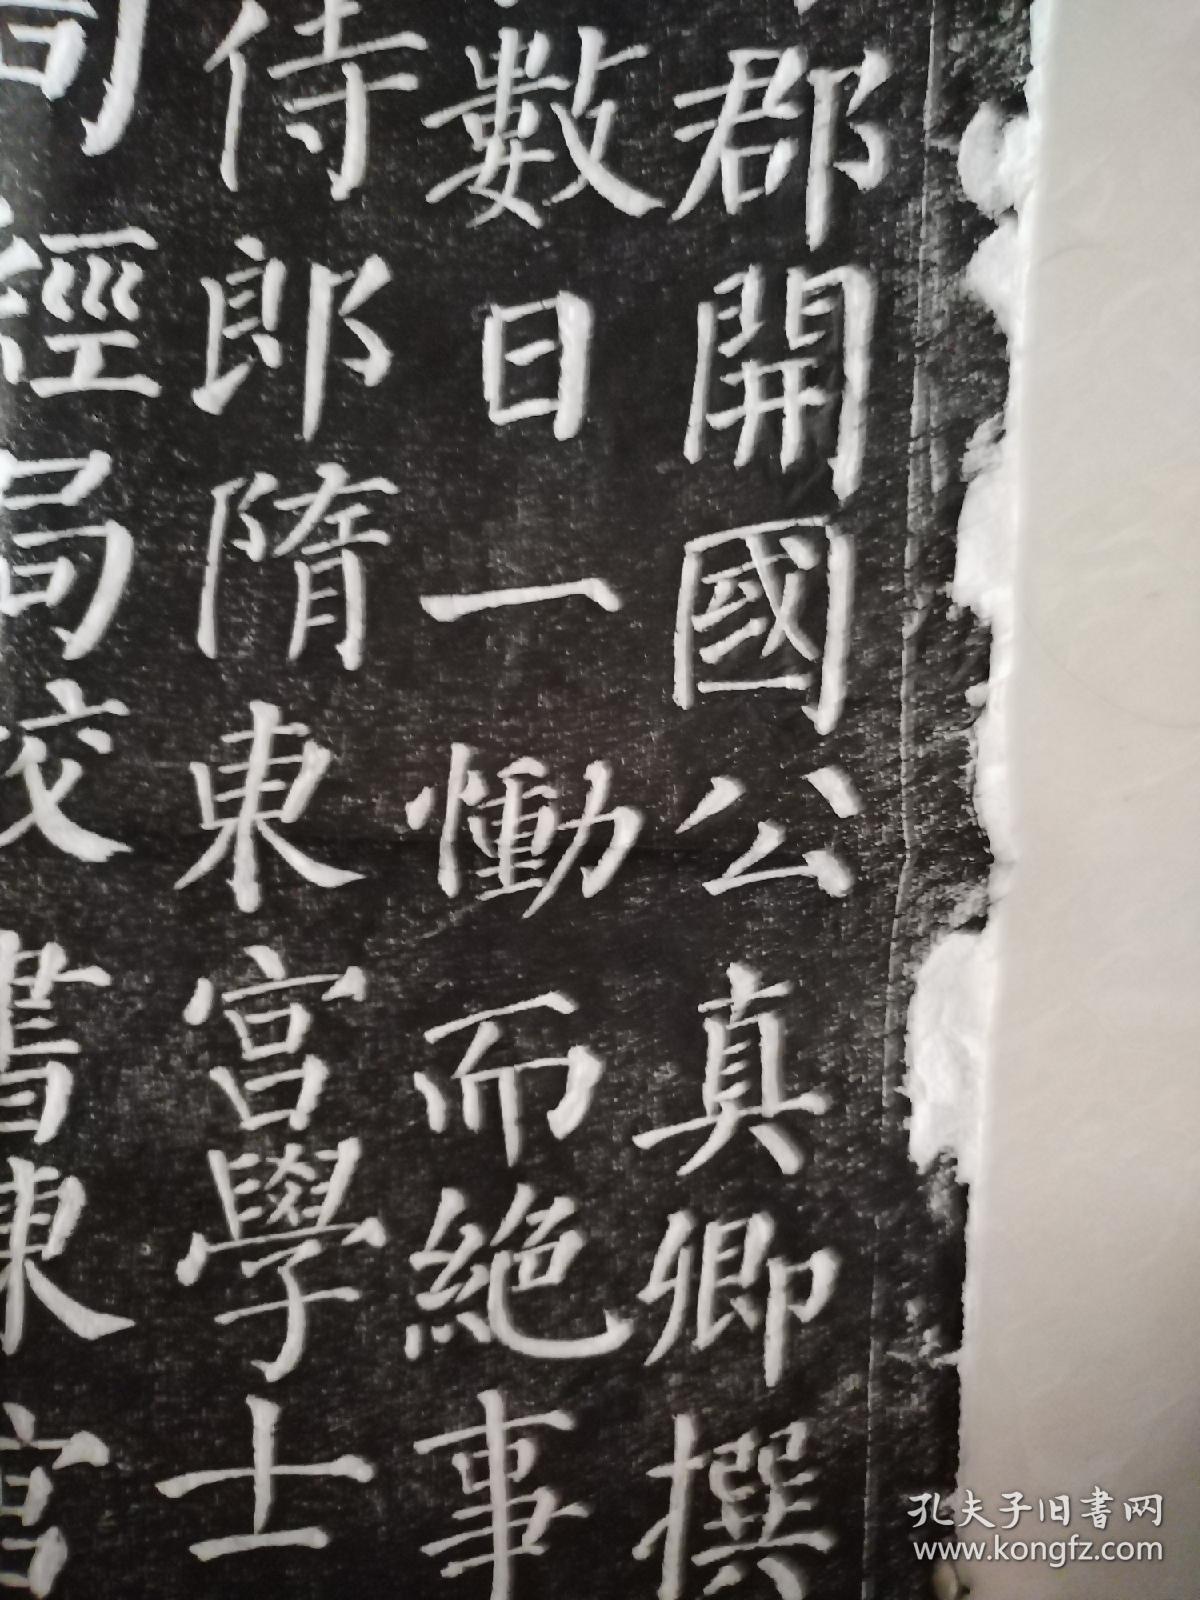 郡開國公真卿撰
數日一慟而絕事
侍郎隋東宮學士
經局校書東宮
孔夫子旧書网
www.kongfz.com